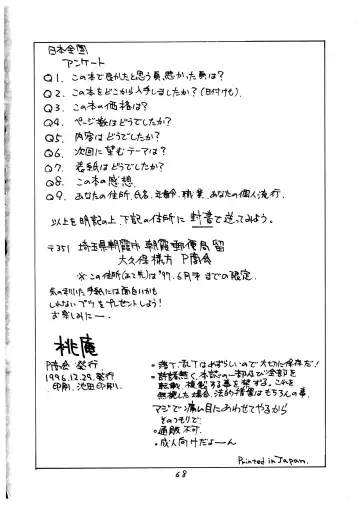 日本全国
アンケート
Q1. この本で良かったと思う頁、悪かった頁は?
Q2. この本をどこから入手しましたか?(日付けも)
Q3. この本の価格は?
Q4. ページ数はどうでしたか?
Q5. 内容はどうでしたか?
Q6. 次回に望むテーマは?
Q7. 表紙はどうでしたか?
Q8. この本の感想.
Q9. あなたの住所、氏名、年齢、職業、あなたの個人流行.
以上を明記の上、下記の住所に封書で送ってみよう。
〒351 埼玉県朝霞市 朝霞郵便局留
大久保様方 P商会
※この住所(あて先)は'97.6月末までの限定.
気の利いた手紙には面白いかも
しれないブツをプレゼントしよう!
お楽しみにー.
桃庵
P商会 発行
1996.12.29.発行
印刷.池田印刷.
・落丁、乱丁はめずらしいので大切に保存だ!
・許諾無く、本誌の一部及び全部を
転載、複製する事を禁ずる。これを
無視した場合、法的措置はもちろんの事、
マジでつ痛い目にあわせてやるから
そのつもりで.
・通販不可.
・成人向けだよーん
Printed in Japan.
68